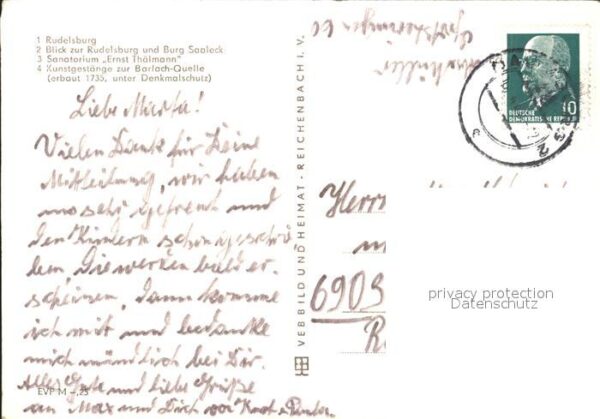 1 Rudelsburg
2 Blick zur Rudelsburg und Burg Saaleck
3 Sanatorium „Ernst Thälmann"
4 Kunstgestänge zur Barlach-Quelle
(erbaut 1735, unter Denkmalschutz)
Liebe Marta!
Vielen Dank für Deine
Mitteilung, wir haben
uns sehr gefreut und
den Kindern schon geschrie
ben, Sie werden bald er-
scheinen, dann komme
ich mit und bedanke
mich mündlich bei Dir.
Alles Gute und liebe Grüße
an Max und Dich von Knot
EVP M -,25
VEB BILD UND HEIMAT · REICHENBACH I. V.
DEUTSCHE
DEMOKRATISCHE REPUBLIK
10
2
Herrn
6909
privacy protection
Datenschutz